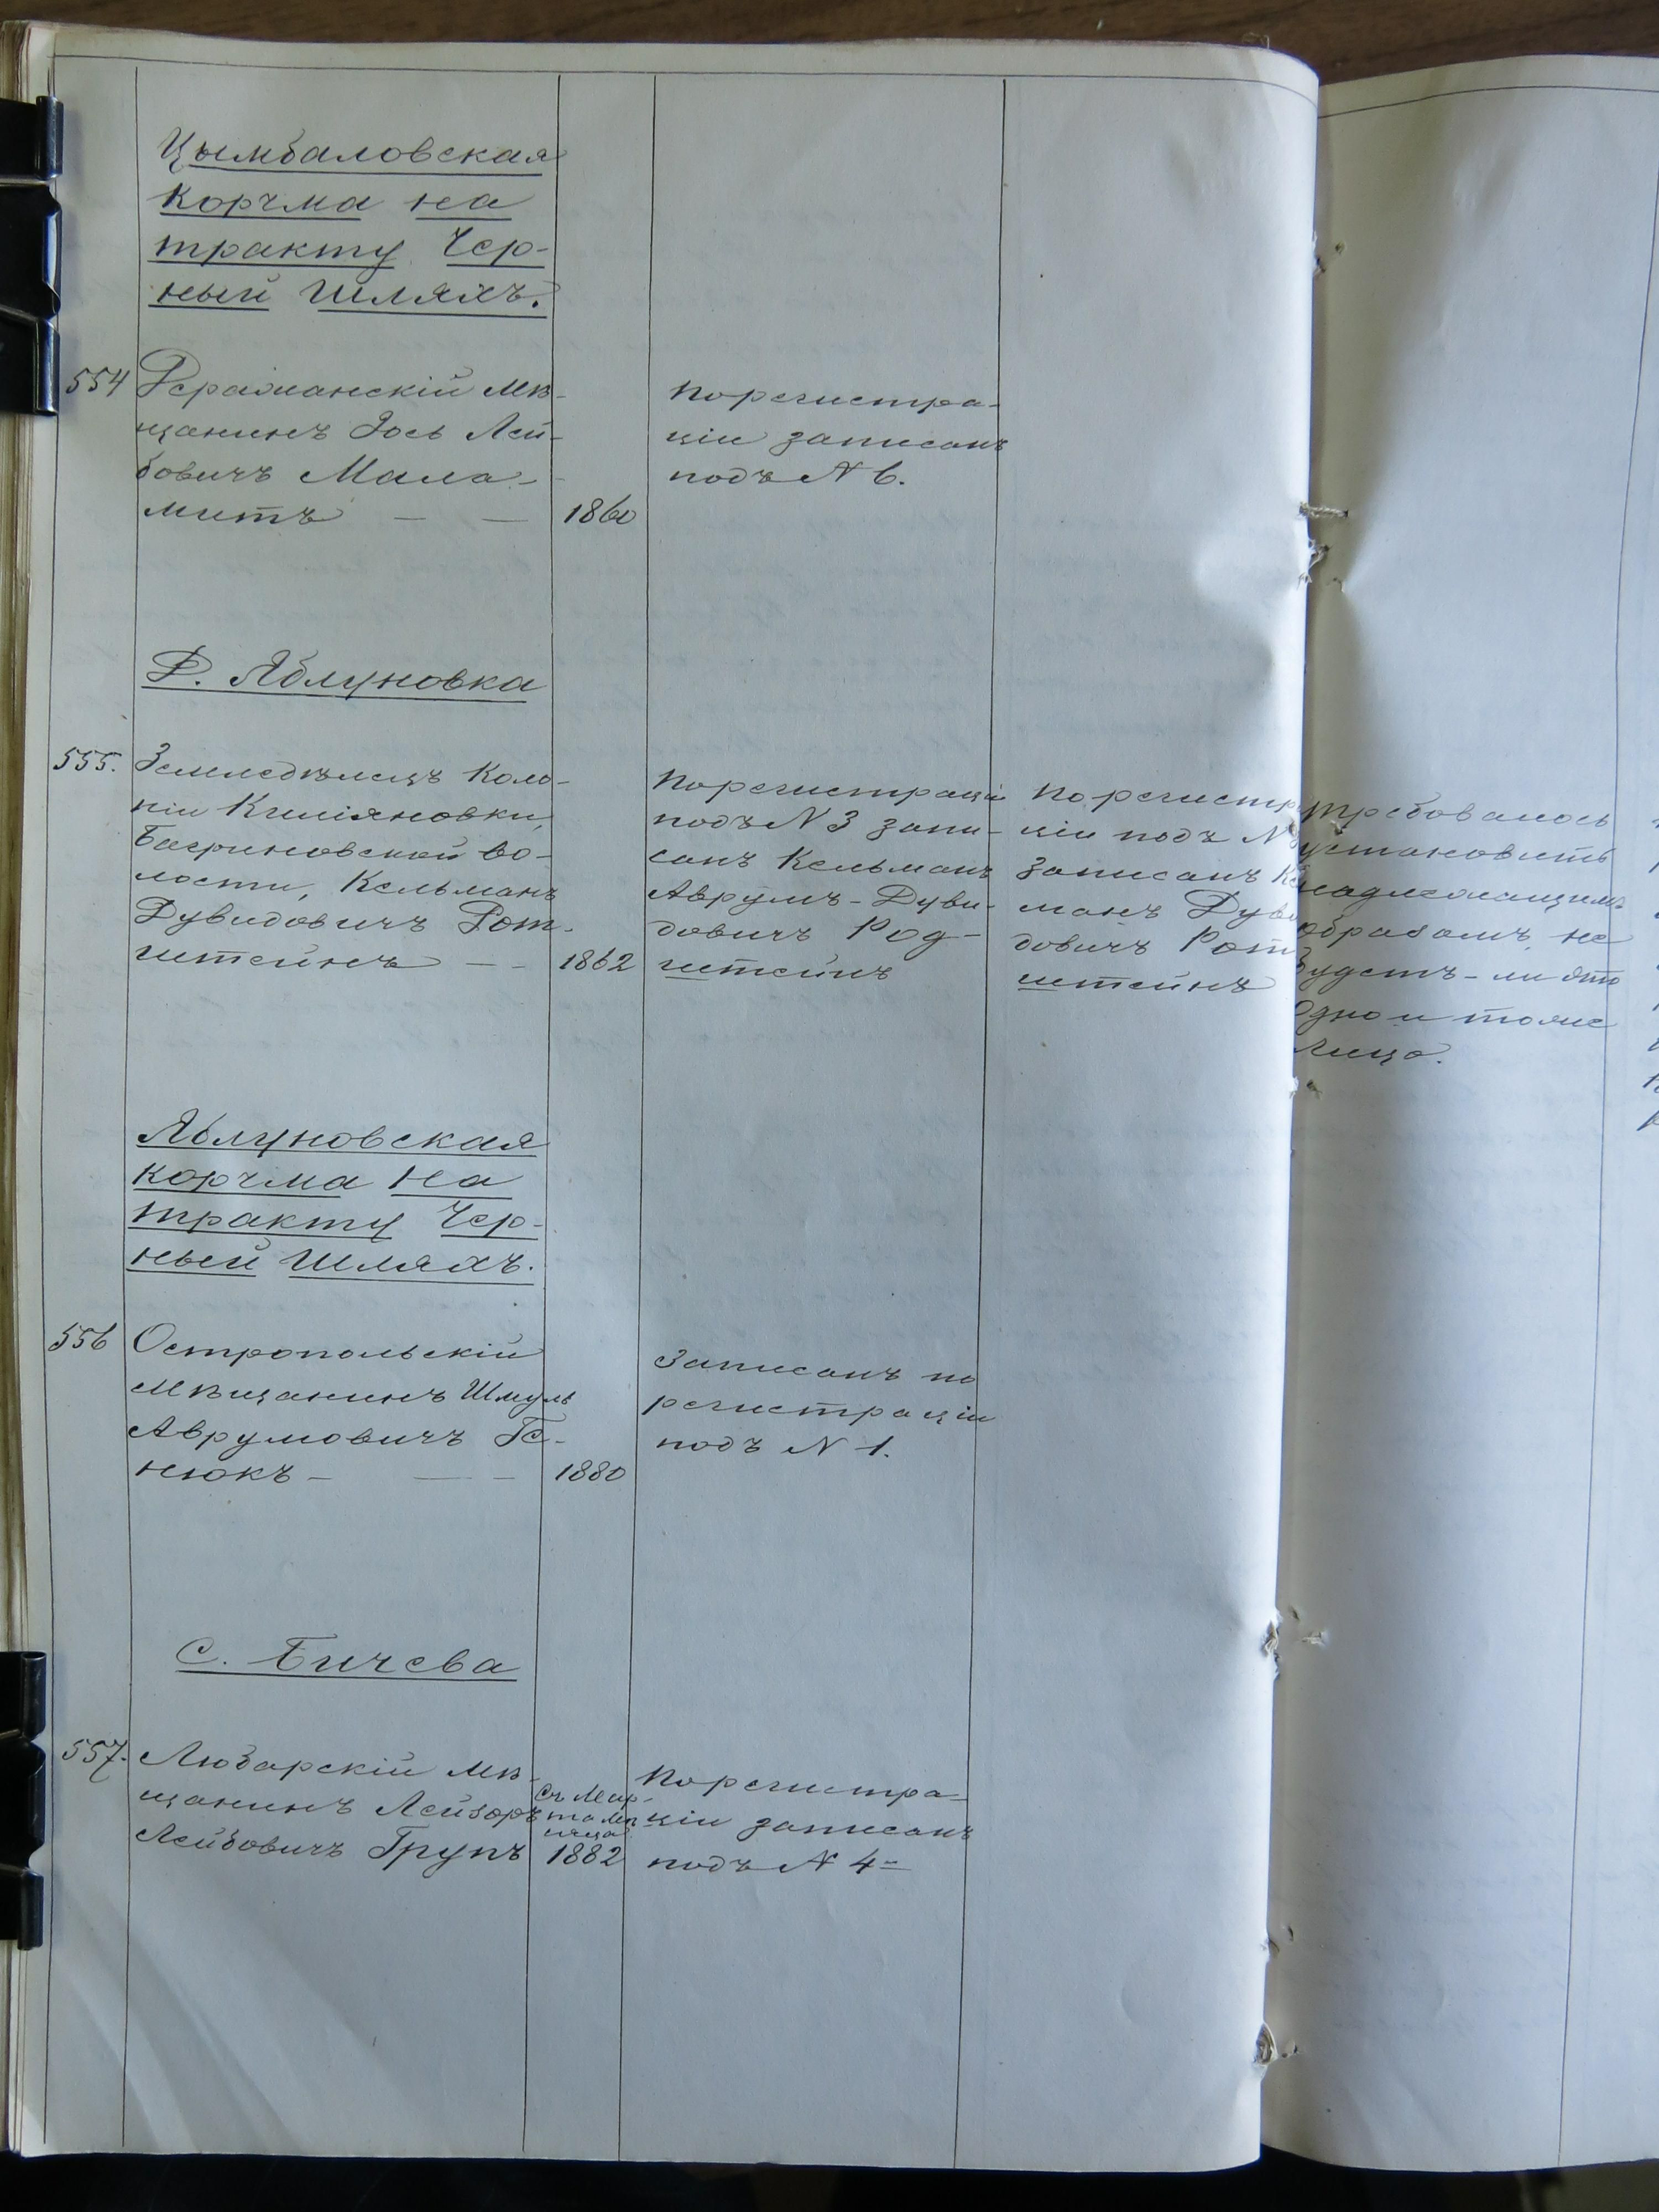 Цымбаловская
корчма на
тракту Чер-
ный Шляхъ.
554 мѣ-
щанинъ Іось Лей-
бовичъ Мала-
митъ — — 1860
По регистра-
ціи записанъ
подъ N 6.
Д. Яблуновка
555. Земледѣлецъ коло-
ніи
Багриновской во-
лости, Кельманъ
Дувидовичъ Рот-
штейнъ — — 1862
По регистраціи
подъ N 3 запи-
санъ Кельманъ
Аврумъ-Дуви-
довичъ Род-
штейнъ
По регистр
ціи подъ N
записанъ Ке
манъ Дуви
довичъ Рот
штейнъ
требовалось
установить
надлежащимъ
образомъ, не
будетъ-ли это
одно и тоже
лицо.
Яблуновская
корчма на
тракту Чер-
ный Шляхъ.
556 Остропольскій
мѣщанинъ Шмуль
Аврумовичъ Ге-
нюкъ — — — 1880
Записанъ по
регистраціи
подъ N 1.
С. Бичева
557. Любарскій мѣ-
щанинъ Лейзоръ
Лейбовичъ Групъ
Съ Мар-
та мѣ
сяца
1882
По регистра-
ціи записанъ
подъ N 4=